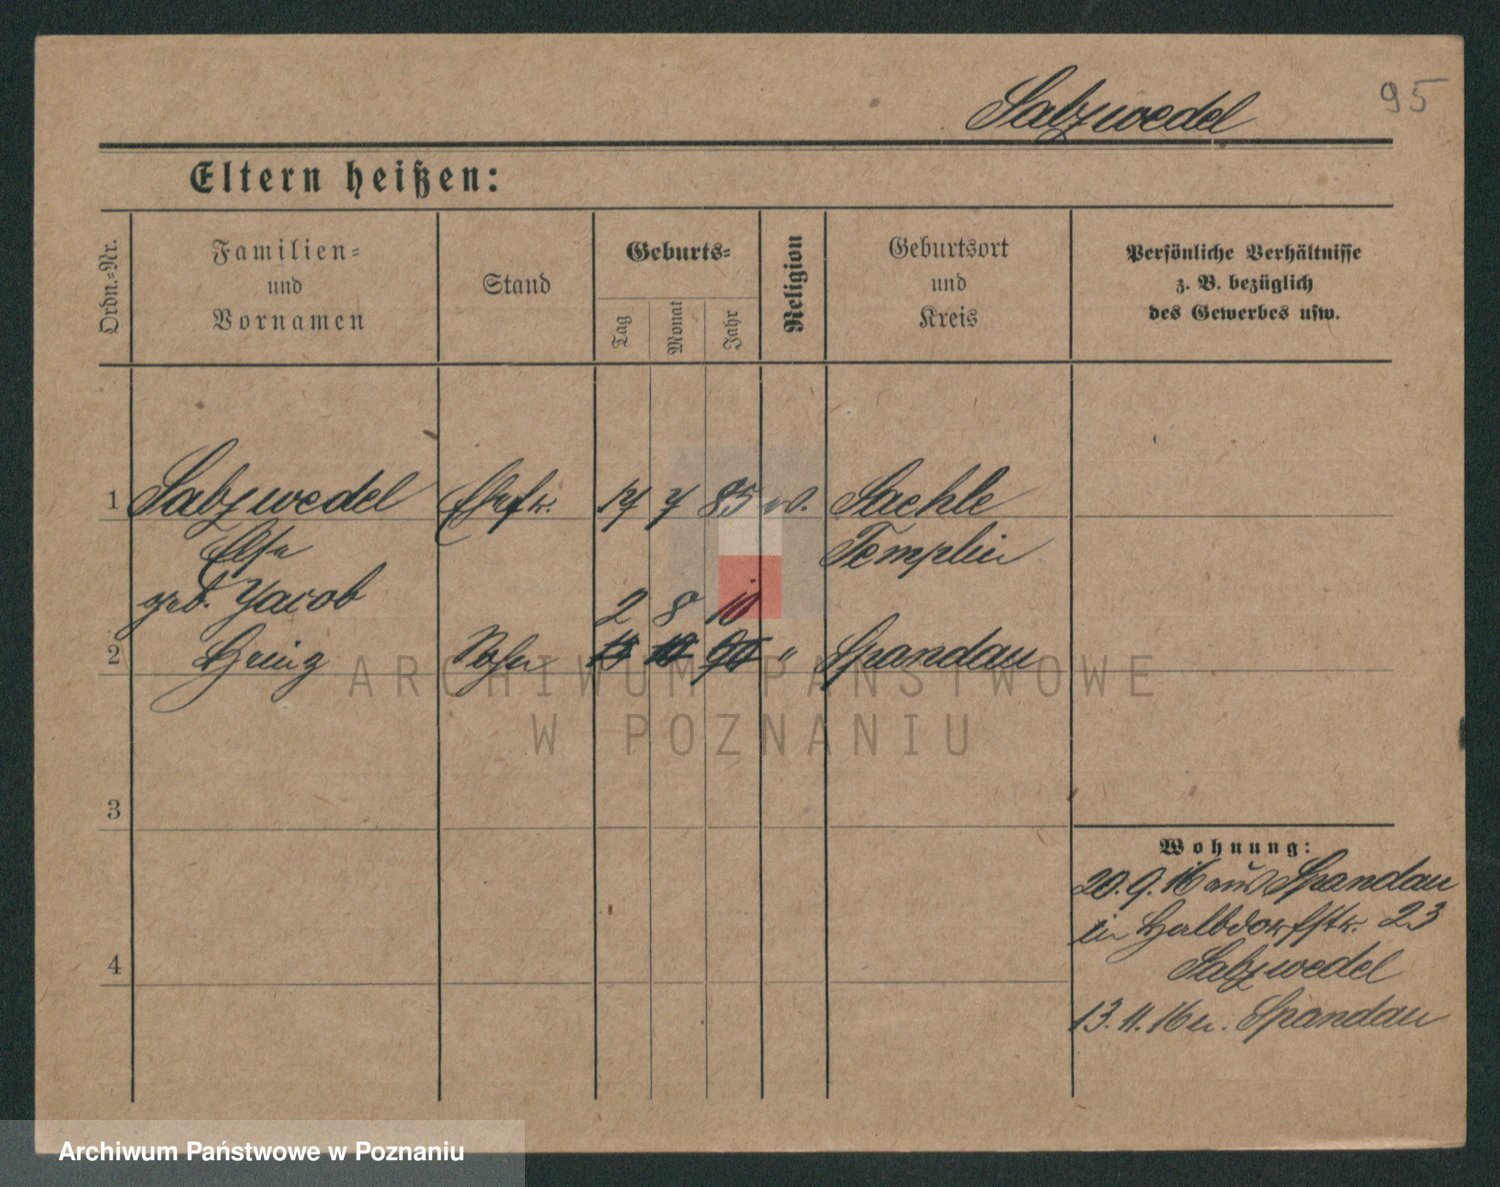 Salzwedel 95
Eltern heißen:
Ordn.-Nr.
Familien-
und
Vornamen
Stand
Geburts-
Tag
Monat
Jahr
Religion
Geburtsort
und
Kreis
Persönliche Verhältnisse
z. B. bezüglich
des Gewerbes usw.
1 Salzwedel Ehefr. 14 7 85 ev. Staehle
Else Templin
geb. Jacob
2 8 10
2 Heinz Sohn " Spandau
ARCHIWUM PAŃSTWOWE
W POZNANIU
3
Wohnung:
20.9.16 aus Spandau
in Halbdorfstr. 23
4 Salzwedel
13.11.16 n. Spandau
Archiwum Państwowe w Poznaniu